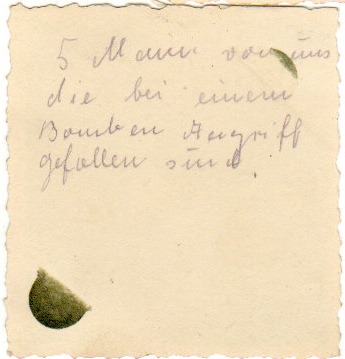 5 Mann von uns
die bei einem
Bomben Angriff
gefallen sind